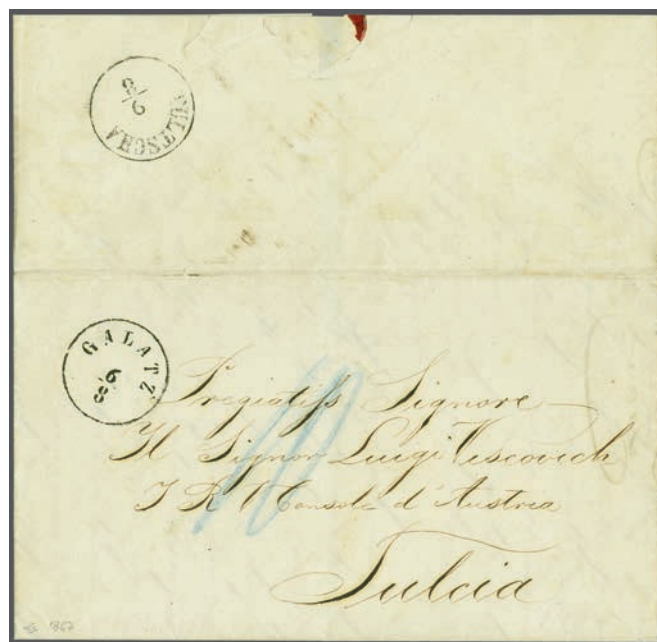 TULTSCHA
9/8
GALATZ
9/8
10
Pregiatiss Signore
Il Signor Luigi Viscovich
I R V Console d'Austria
Tulcia